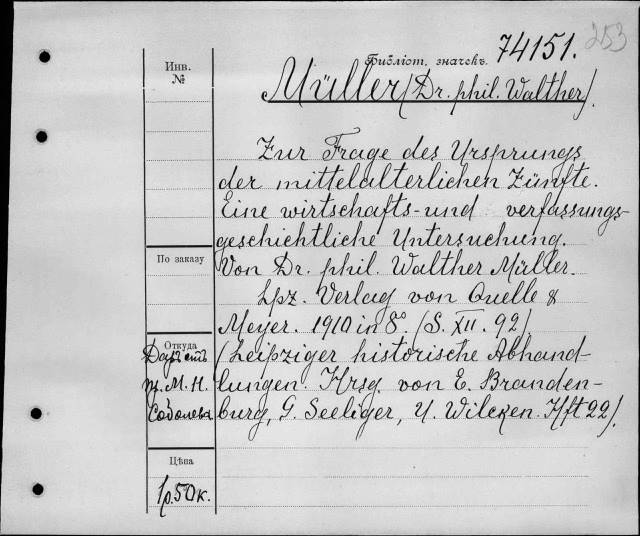 253
Библіот. значекъ. 74151.
Инв.
№
Müller (Dr. phil. Walther).
Zur Frage des Ursprungs
der mittelalterlichen Zünfte.
Eine wirtschafts- und verfassungs-
geschichtliche Untersuchung.
Von Dr. phil. Walther Müller.
Lpz. Verlag von Quelle &
Meyer. 1910 in 8° (S. XII. 92)
(Leipziger historische Abhand-
lungen. Hrsg. von E. Branden-
burg, G. Seeliger, U. Wilcken. Hft 22).
По заказу
Откуда
М. Н.
Соболева
Цѣна
1р.50к.